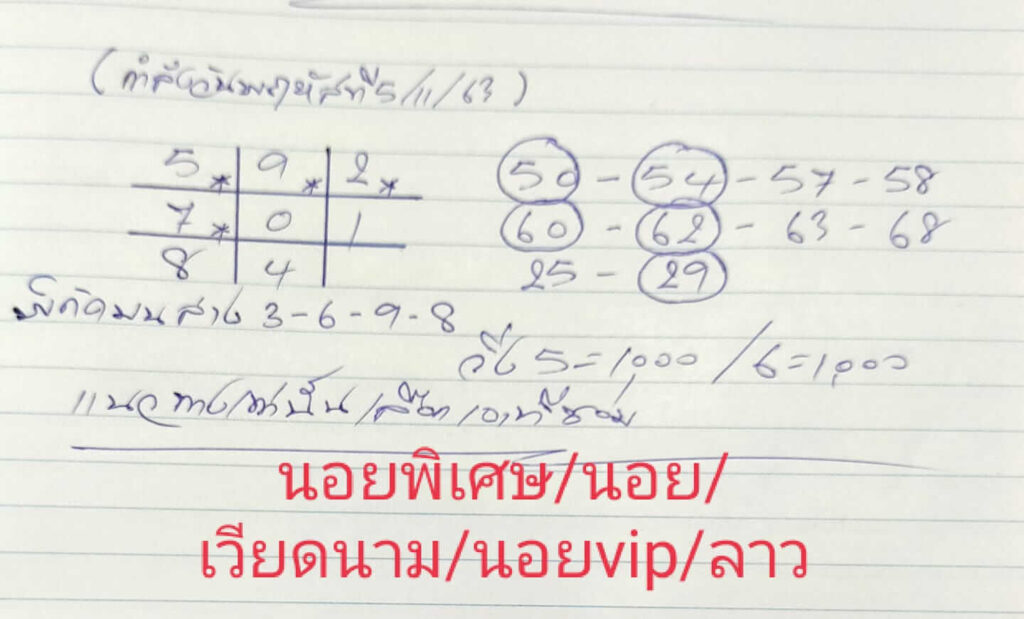 (กำลังวันพฤหัสที่ 5/11/63)
5* 9* 2*
7* 0 1
8 4
50 - 54 - 57 - 58
60 - 62 - 63 - 68
25 - 29
บน ล่าง 3-6-9-8
วิ่ง 5=1,000 / 6=1,000
แนวทางเท่านั้น เลือกเอาที่ชอบ
นอยพิเศษ/นอย/
เวียดนาม/นอยvip/ลาว